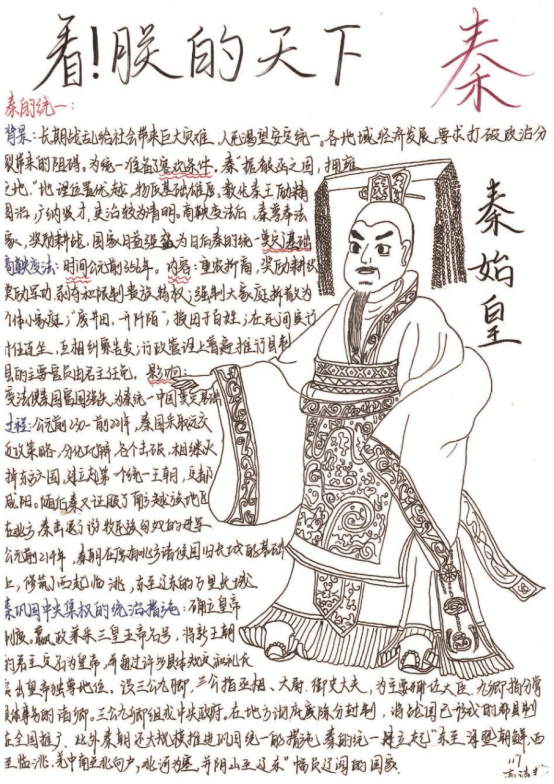 看！朕的天下
秦
秦的统一：
背景：长期战乱给社会带来巨大灾难，人民渴望安定统一。各地域经济发展要求打破政治分
裂带来的阻碍。为统一准备了客观条件。秦"据崤函之固，拥雍
州之地，"地理位置优越，物质基础雄厚。数代秦王励精
图治，广纳贤才，吏治较为清明。商鞅变法后，秦
奖励耕战，国家日益强盛为日后秦的统一奠定基础
商鞅变法：时间公元前356年。内容：重农抑商，奖励耕织
奖励军功，剥夺和限制贵族特权；强制大家庭拆散为
个体小家庭；"废井田，开阡陌"，授田于百姓；在民间实行
什伍连坐，互相纠察告发；行政管理上普遍推行县制
县的主要官员由君主任免。影响：
变法使秦国富国强兵，为统一中国奠定基础
过程：公元前230-前221年，秦国采取远交
近攻策略，分化瓦解，各个击破，相继灭
掉东方六国，建立起第一个统一王朝，定都
咸阳。随后秦又征服了南方越族地区
在北方，秦击退了游牧民族匈奴的进犯
公元前214年，秦朝在原有北方诸侯国旧长城的基础
上，修筑了西起临洮，东至辽东的万里长城
秦巩固中央集权的统治措施：确立皇帝
制度。嬴政兼采三皇五帝名号，将新王朝
的君主定名为皇帝，并通过许多具体规定和礼仪
突出皇帝独尊地位。设三公九卿，三公指丞相、太尉、御史大夫，为主要辅佐大臣，九卿指分掌
具体事务的诸卿。三公九卿组成中央政府。在地方彻底废除分封制，将战国已形成的郡县制
在全国推行，此外秦朝还大规模推进巩固统一的措施，秦的统一建立起"东至海暨朝鲜，西
至临洮、羌中，南至北向户，北河为塞，并阴山至辽东"幅员辽阔的国家
秦始皇